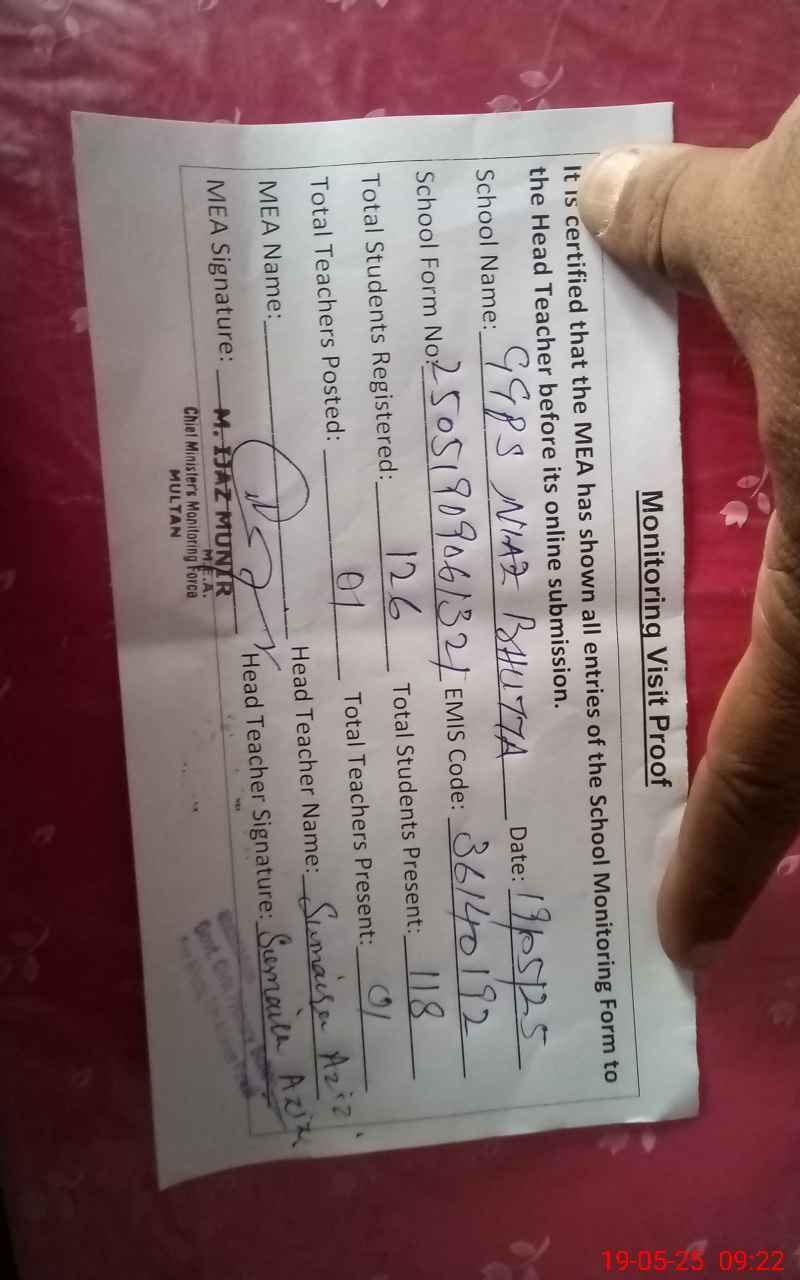 Monitoring Visit Proof
It is certified that the MEA has shown all entries of the School Monitoring Form to
the Head Teacher before its online submission.
School Name: GGPS NIAZ BHUTTA Date: 19/05/25
School Form No: 25051909061321 EMIS Code: 36140192
Total Students Registered: 126 Total Students Present: 118
Total Teachers Posted: 01 Total Teachers Present: 01
MEA Name: Head Teacher Name: Sumaira Aziz
MEA Signature: Head Teacher Signature: Sumaira Aziz
M. IJAZ MUNIR
M.E.A.
Chief Ministers Monitoring Force
MULTAN
19-05-25 09:22